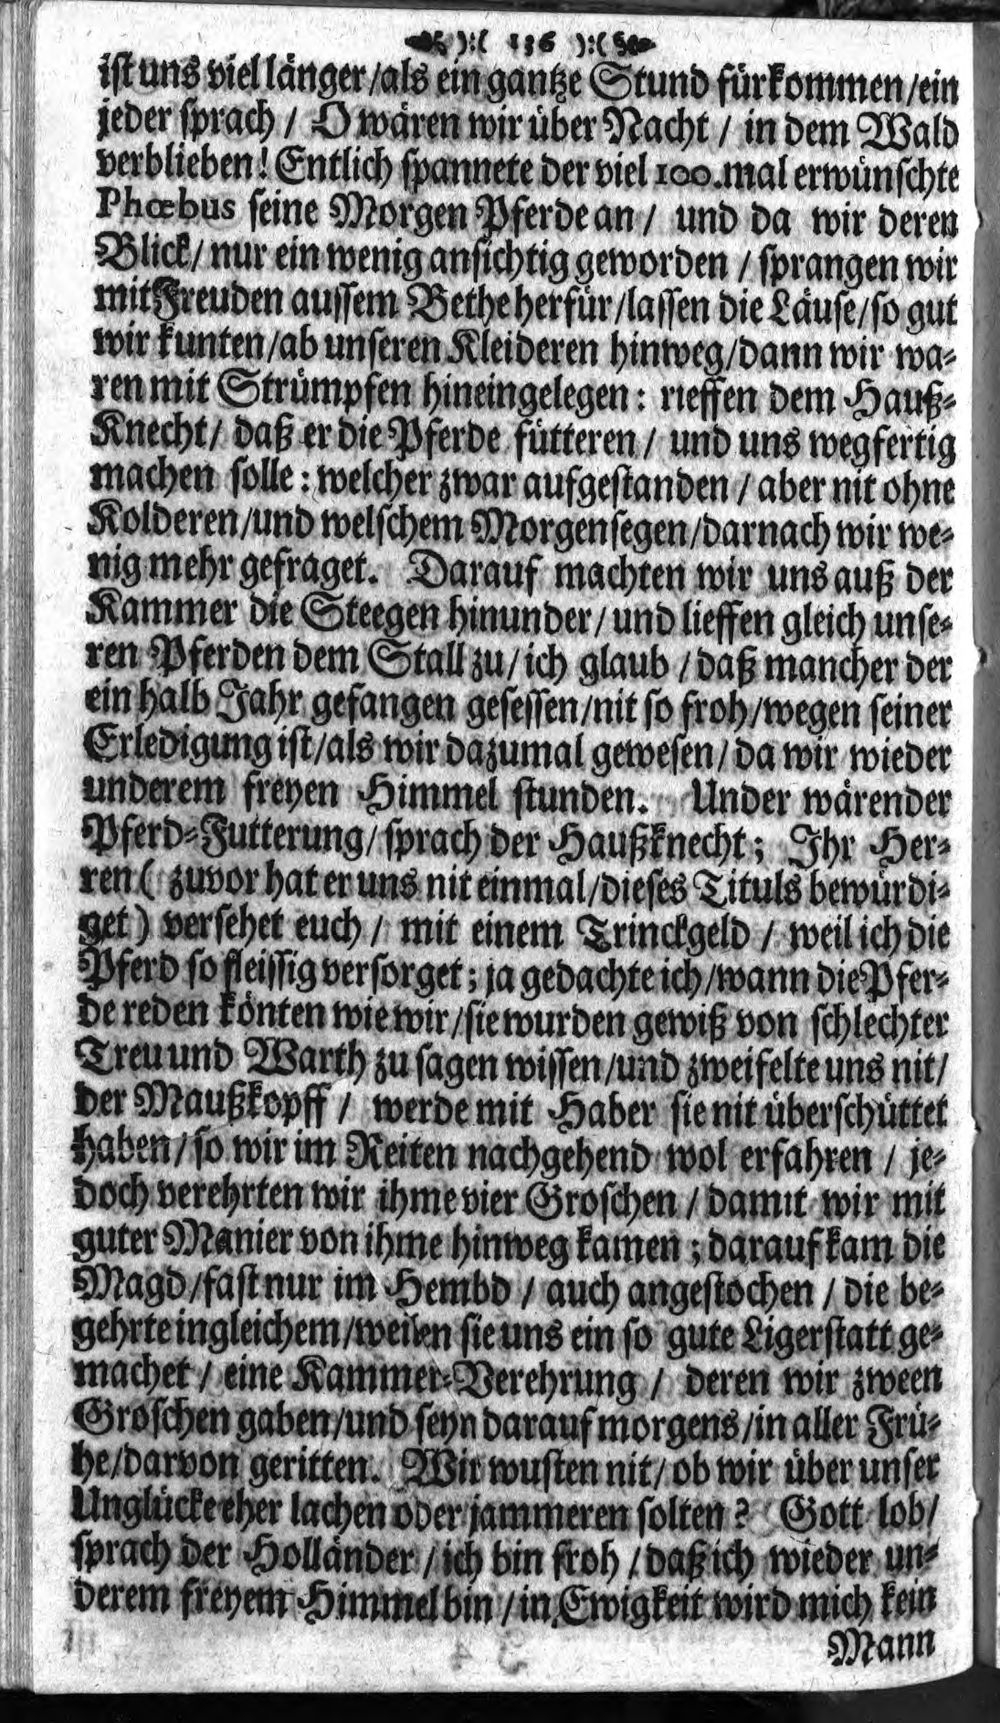 ):( 136 ):(
ist uns viel länger/als ein gantze Stund fürkommen/ein
jeder sprach / O wären wir über Nacht / in dem Wald
verblieben! Entlich spannete der viel 100.mal erwünschte
Phœbus seine Morgen Pferde an / und da wir deren
Blick/ nur ein wenig ansichtig geworden / sprangen wir
mit Freuden aussem Bethe herfür/lassen die Läuse/so gut
wir kunten/ab unseren Kleideren hinweg/dann wir wa-
ren mit Strümpfen hineingelegen: rieffen dem Hauß-
Knecht/ daß er die Pferde fütteren / und uns wegfertig
machen solle: welcher zwar aufgestanden / aber nit ohne
Kolderen/und welschem Morgensegen/darnach wir we-
nig mehr gefraget. Darauf machten wir uns auß der
Kammer die Steegen hinunder/ und lieffen gleich unse-
ren Pferden dem Stall zu/ ich glaub / daß mancher der
ein halb Jahr gefangen gesessen/nit so froh/wegen seiner
Erledigung ist/als wir dazumal gewesen/ da wir wieder
underem freyen Himmel stunden. Under wärender
Pferd-Futterung/ sprach der Haußknecht; Ihr Her-
ren ( zuvor hat er uns nit einmal/dieses Tituls bewürdi-
get) versehet euch / mit einem Trinckgeld / weil ich die
Pferd so fleissig versorget; ja gedachte ich/wann die Pfer-
de reden könten wie wir/sie wurden gewiß von schlechter
Treu und Warth zu sagen wissen/und zweifelte uns nit/
der Maußkopff / werde mit Haber sie nit überschüttet
haben/ so wir im Reiten nachgehend wol erfahren / je-
doch verehrten wir ihme vier Groschen / damit wir mit
guter Manier von ihme hinweg kamen ; darauf kam die
Magd/fast nur im Hembd / auch angestochen / die be-
gehrte ingleichem/weilen sie uns ein so gute Ligerstatt ge-
machet / eine Kammer-Verehrung / deren wir zween
Groschen gaben/und seyn darauf morgens/in aller Frü-
he/darvon geritten. Wir wusten nit/ ob wir über unser
Unglücke eher lachen oder jammeren solten? Gott lob/
sprach der Holländer / ich bin froh / daß ich wieder un-
derem freyem Himmel bin / in Ewigkeit wird mich kein
Mann